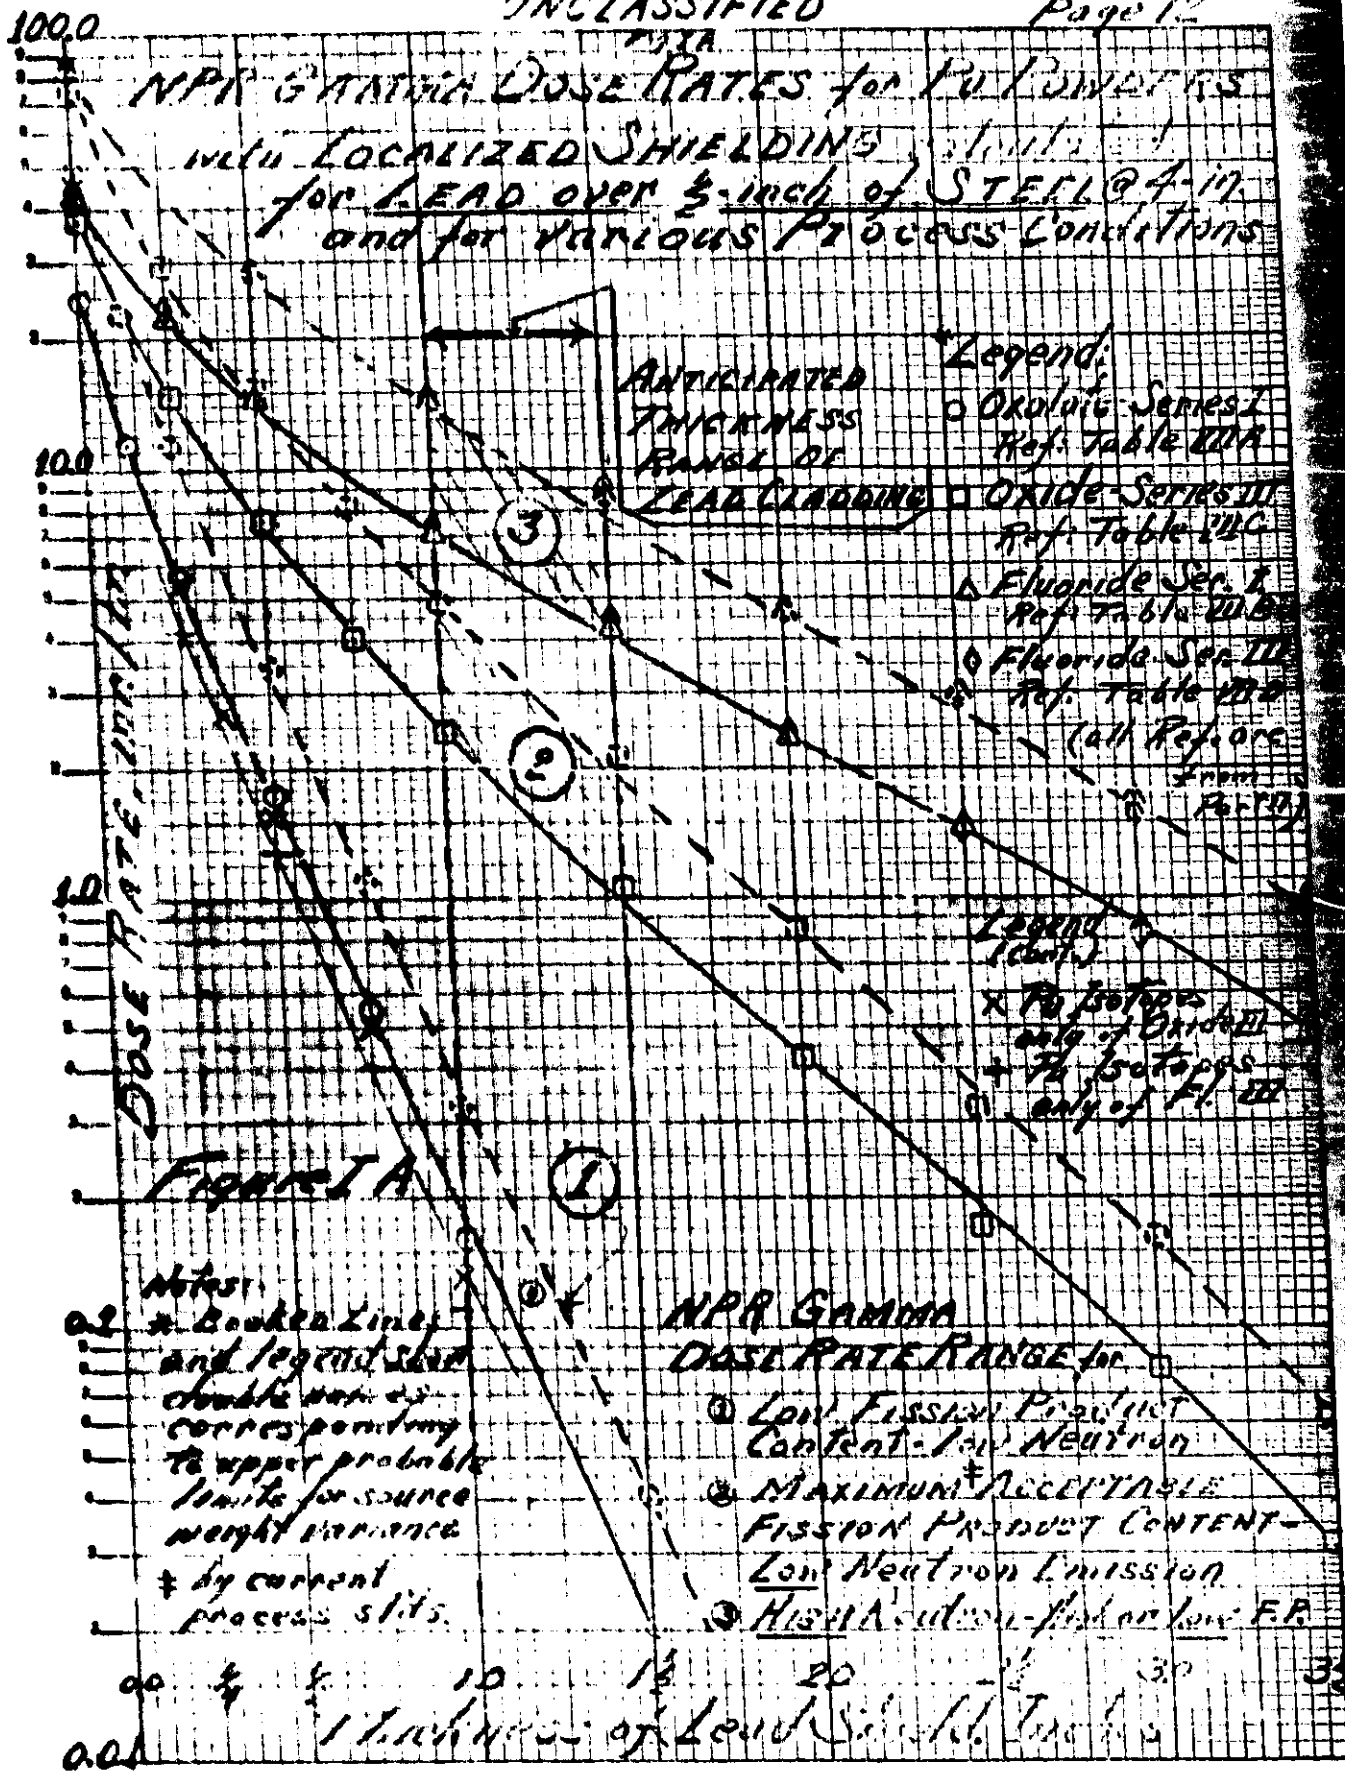 UNCLASSIFIED
Page 12
100.0
NPR GAMMA DOSE RATES for PU POWDERS
with LOCALIZED SHIELDING
for LEAD over ½-inch of STEEL @ 4-in.
and for various Process Conditions
ANTICIPATED
THICKNESS
RANGE OF
LEAD CLADDING
Legend:
○ Oxalate-Series I
Ref: Table III A
□ Oxide-Series III
Ref: Table III C
△ Fluoride Ser. I
Ref: Table III B
◊ Fluoride Ser. III
Ref. Table
(all Ref. are
from
Part II)
10.0
3
2
1.0
DOSE RATE, mr./hr
Legend
(Cont.)
X Pu Isotopes
only of Oxide III
+ Pu Isotopes
only of Fl. III
Figure I A
1
Notes:
* Broken Lines
and legend show
double values
corresponding
to upper probable
limits for source
weight variance
‡ by current
process stds.
0.1
NPR GAMMA
DOSE RATE RANGE for
① Low Fission Product
Content-low Neutron
② MAXIMUM ‡ ACCEPTABLE
FISSION PRODUCT CONTENT-
Low Neutron Emission
③ HIGH Neutron- low F.P.
0.0 ¼ ½ 1.0 1½ 2.0 2½ 3.0
Thickness of Lead Shield, Inches
0.01